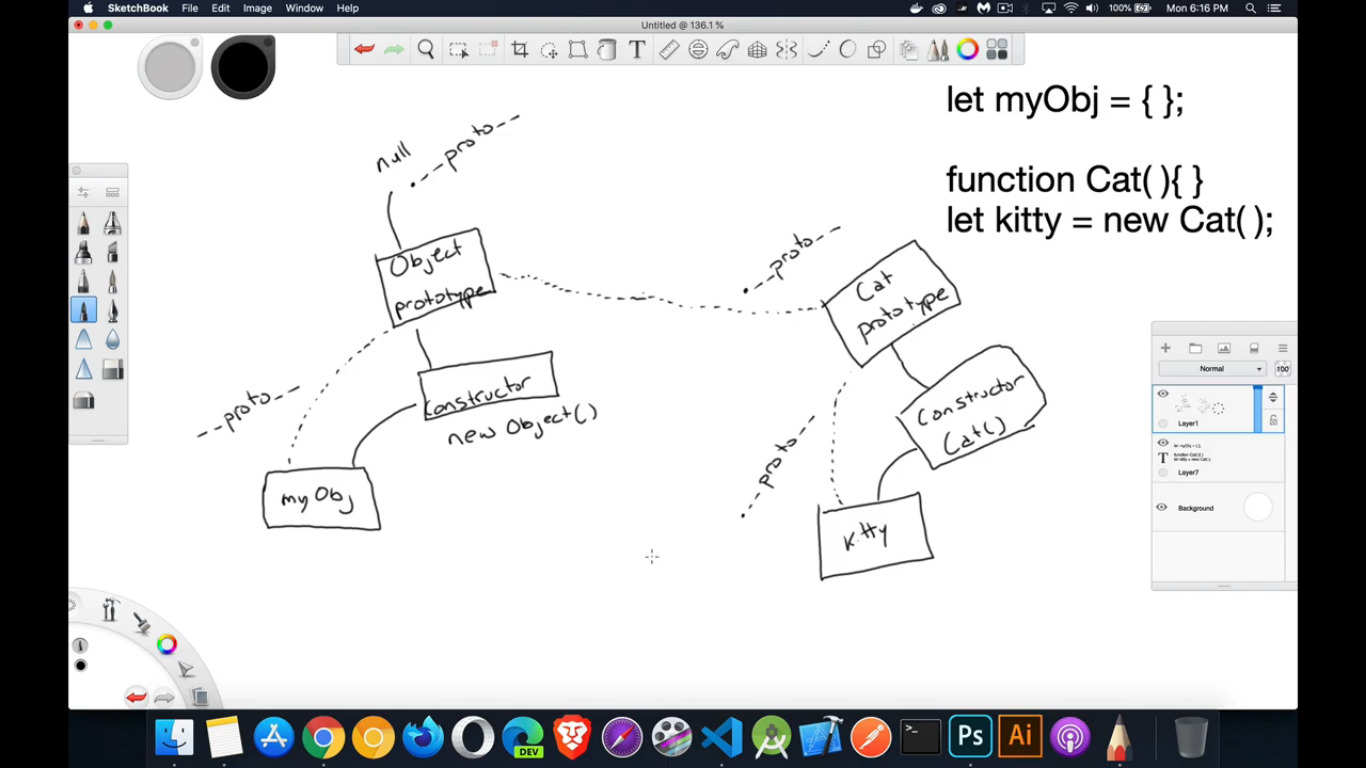 SketchBook File Edit Image Window Help
100% Mon 6:16 PM
Untitled @ 136.1 %
let myObj = { };
function Cat( ){ }
let kitty = new Cat( );
null
--proto--
Object
prototype
--proto--
Cat
prototype
constructor
new Object()
--proto--
myObj
constructor
Cat()
--proto--
kitty
Normal
100
Layer1
let myObj = { };
function Cat( ){ }
let kitty = new Cat( );
Layer7
Background
DEV
Ps
Ai